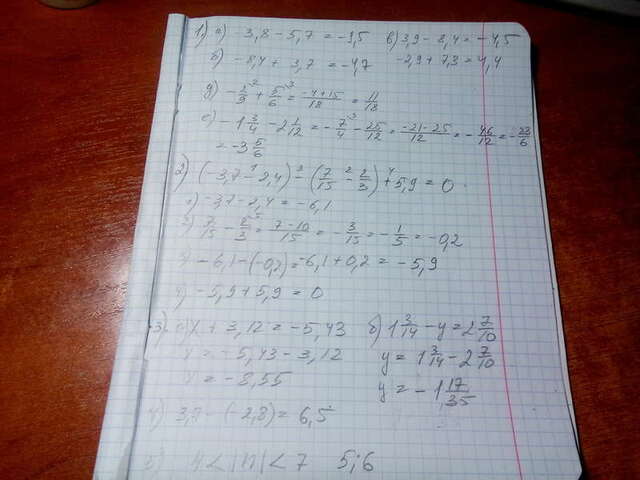 1) а) -3,8 - 5,7 = -9,5 в) 3,9 - 8,4 = -4,5
б) -8,4 + 3,7 = -4,7 -2,9 + 7,3 = 4,4
д) -2/9 + 5/6 = (-4+15)/18 = 11/18
е) -1 3/4 - 2 1/12 = -7/4 - 25/12 = (-21-25)/12 = -46/12 = -23/6
= -3 5/6
2) (-3,7 - 2,4) - (7/15 - 2/3) + 5,9 = 0
1) -3,7 - 2,4 = -6,1
2) 7/15 - 2/3 = (7-10)/15 = -3/15 = -1/5 = -0,2
3) -6,1 - (-0,2) = -6,1 + 0,2 = -5,9
4) -5,9 + 5,9 = 0
3) а) x + 3,12 = -5,43 б) 1 3/14 - y = 2 7/10
x = -5,43 - 3,12 y = 1 3/14 - 2 7/10
x = -8,55 y = -1 17/35
4) 3,7 - (-2,8) = 6,5
5) 4 < |n| < 7 5; 6